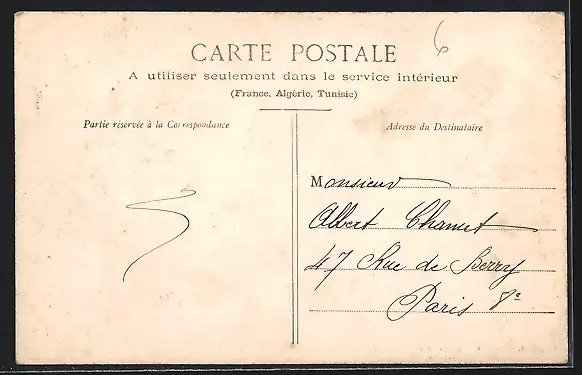 6
CARTE POSTALE
A utiliser seulement dans le service intérieur
(France, Algérie, Tunisie)
Partie réservée à la Correspondance
Adresse du Destinataire
Monsieur
Albert Chanut
47 Rue de Berry
Paris 8e